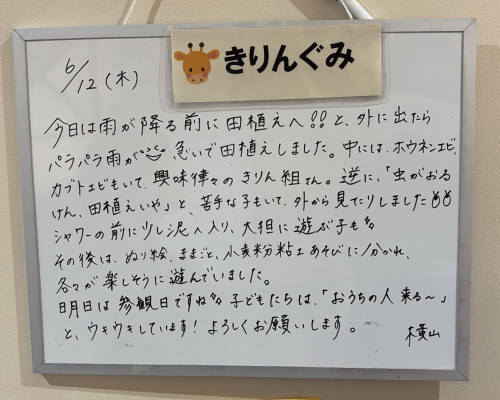 きりんぐみ
6/12(木)
今日は雨が降る前に田植えへ!!と、外に出たら
パラパラ雨が 急いで田植えしました。中には、ホウネンエビ、
カブトエビもいて、興味律々のきりん組さん。逆に、「虫がおる
けん、田植えいや」と、苦手な子もいて、外から見てたりしました
シャワーの前に少し泥へ入り、大担に遊ぶ子も
その後は、ぬり絵、ままごと、小麦粉粘土あそびに分かれ、
各々が楽しそうに遊んでいました。
明日は参観日ですね 子どもたちは、「おうちの人来る〜」
と、ウキウキしています!よろしくお願いします。
横山